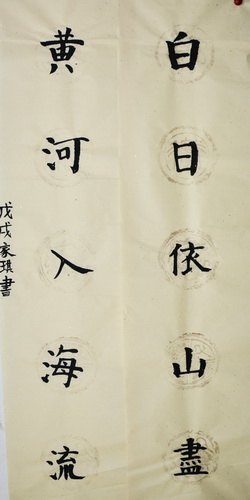 白日依山盡
黄河入海流
戊戌家琪書